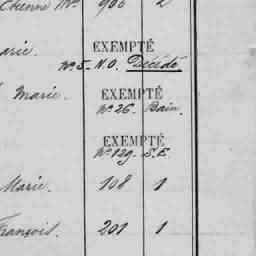 Etienne Mie. 906 2
Marie. EXEMPTÉ
N° 5. N.O. Décédé
Marie. EXEMPTÉ
N° 26. Bain.
EXEMPTÉ
N° 129. S.E.
Marie. 108 1
François. 201 1